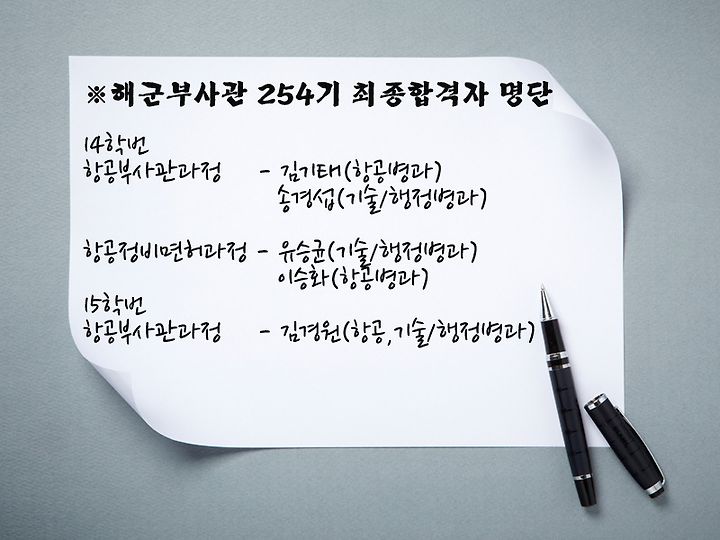 ※해군부사관 254기 최종합격자 명단
14학번
항공부사관과정 - 김기태(항공병과)
송경섭(기술/행정병과)
항공정비면허과정 - 유승균(기술/행정병과)
이승화(항공병과)
15학번
항공부사관과정 - 김경원(항공,기술/행정병과)